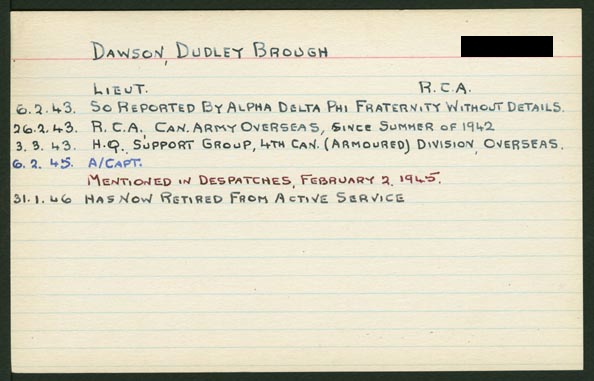 DAWSON, DUDLEY BROUGH
LIEUT. R.C.A.
6.2.43. SO REPORTED BY ALPHA DELTA PHI FRATERNITY WITHOUT DETAILS.
26.2.43. R.C.A., CAN. ARMY OVERSEAS, SINCE SUMMER OF 1942
3.3.43. H.Q. SUPPORT GROUP, 4TH CAN. (ARMOURED) DIVISION, OVERSEAS.
6.2.45. A/CAPT.
MENTIONED IN DESPATCHES, FEBRUARY 2, 1945.
31.1.46 HAS NOW RETIRED FROM ACTIVE SERVICE